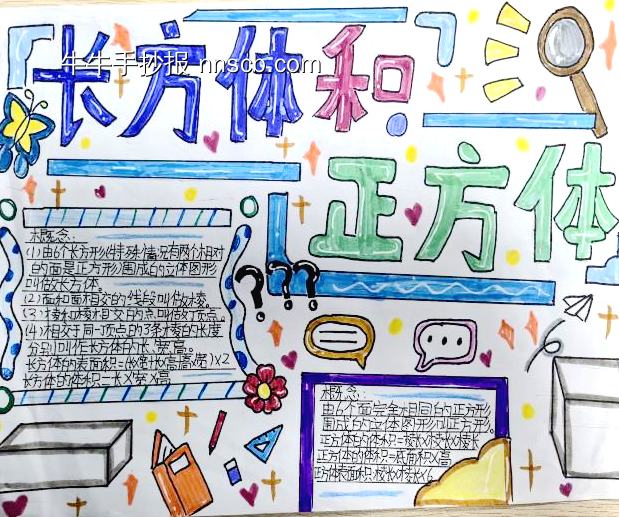 牛牛手抄报 nnscb.com
长方体和
正方体
概念：
(1)由6个长方形(特殊情况有两个相对
的面是正方形)围成的立体图形
叫做长方体.
(2)面和面相交的线段叫做棱。
(3)棱和棱相交的点叫做顶点。
(4)相交于同一顶点的3条棱的长度
分别叫作长方体的长、宽、高。
长方体的体积=长X宽X高
???
概念：
由6个面完全相同的正方形
围成的立体图形叫正方形。
正方体的体积=棱长X棱长X棱长
正方体的体积=底面积X高
方体表面积:棱长X棱长X6